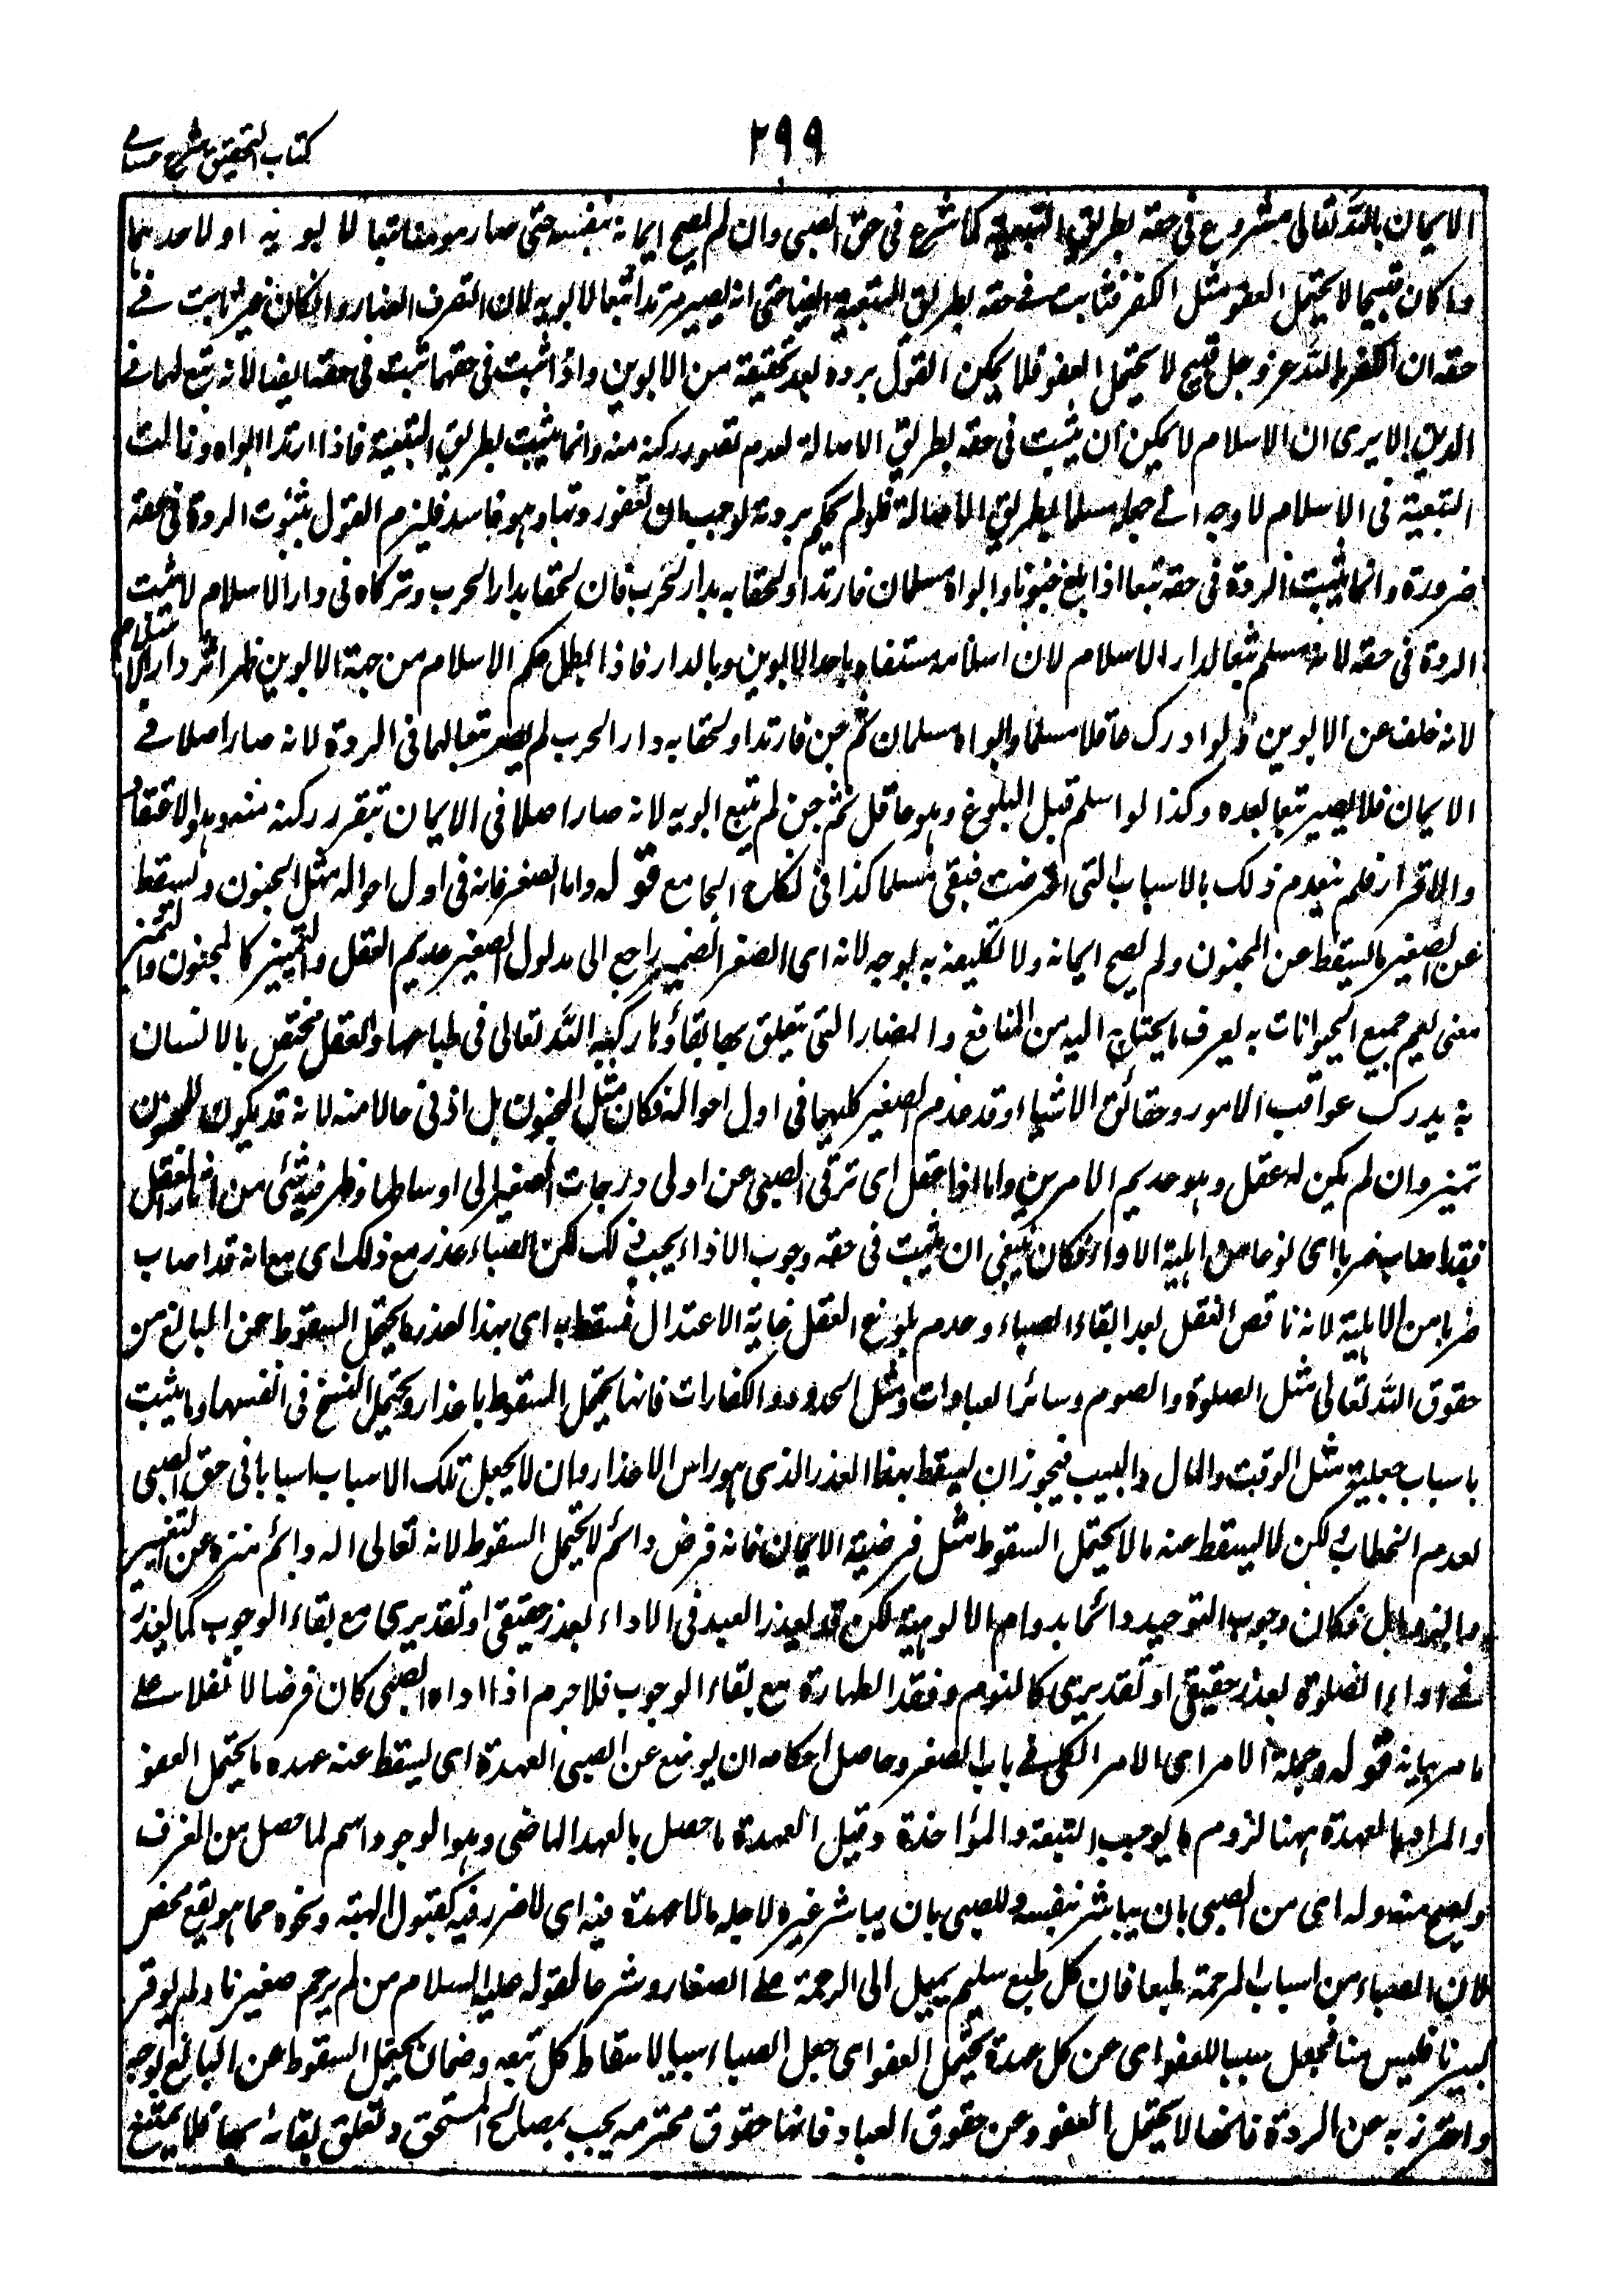 ٢٩٩
كتاب التحقيق شرح حسامي
الايمان بالله تعالى مشروع في حقه بطريق التبعية كما شرع في حق الصبي وان لم يصح ايمانه بنفسه حتى صار مومنا تبعا لابويه او لاحدهما
وما كان قبيحا لا يحتمل العفو مثل الكفر فثابت في حقه بطريق التبعية ايضا حتى انه يصير مرتدا تبعا لابويه لان التصرف الضار وان كان غير ثابت في
حقه ان الكفر بالله عز وجل قبيح لا يحتمل العفو فلا يمكن القول برده بعد تحقيقه من الابوين واذا ثبت في حقهما ثبت في حقه ايضا لانه تبع لهما في
الدين الا يرى ان الاسلام لا يمكن ان يثبت في حقه بطريق الاصالة لعدم تصور ركنه منه وانما يثبت بطريق التبعية فاذا ارتدا ابواه وزالت
التبعية في الاسلام لا وجه الى جعله مسلما بطريق الاصالة فلو لم يحكم بردته لوجب ان تعفو ردتهما وهو فاسد فلزم القول بثبوت الردة في حقه
ضرورة وانما يثبت الردة في حقه تبعا اذا بلغ مجنونا وابواه مسلمان فارتدا ولحقا به بدار الحرب فان لحقا بدار الحرب وتركاه في دار الاسلام لا يثبت
الردة في حقه لانه مسلم تبعا لدار الاسلام لان اسلامه مستفاد باحد الابوين وبالدار فاذا بطل حكم الاسلام من جهة الابوين ظهر اثر دار الاسلام
لانه خلف عن الابوين ولو ادرك عاقلا مسلما وابواه مسلمان ثم جن فارتدا ولحقا به دار الحرب لم يصر تبعا لهما في الردة لانه صار اصلا في
الايمان فلا يصير تبعا بعده وكذا لو اسلم قبل البلوغ وهو عاقل ثم جن لم يتبع ابويه لانه صار اصلا في الايمان بتقرر ركنه منه وهو الاعتقاد
والاقرار فلم ينعدم ذلك بالاسباب التي اعترضت فبقي مسلما كذا في نكاح الجامع قوله واما الصغر فانه في اول احواله مثل الجنون ويسقط
عن الصغير ما يسقط عن المجنون ولم يصح ايمانه ولا تكليفه به بوجه لانه اى الصغر الضمير راجع الى مدلول الصغير عديم العقل والتميز كالمجنون والتميز
معنى يعم جميع الحيوانات به يعرف ما يحتاج اليه من المنافع والمضار التي يتعلق بها بقاؤها ركبه الله تعالى في طباعها والعقل مختص بالانسان
به يدرك عواقب الامور وحقائق الاشياء وقد عدم الصغير كليهما في اول احواله فكان مثل المجنون بل ادنى حالا منه لانه قد يكون للمجنون
تميز وان لم يكن له عقل وهو عديم الامرين واما اذا عقل اى ترقى الصبى عن اولى درجات الصغر الى اوساطها وظهر فيه شئ من آثار العقل
فقد اصاب ضربا اى نوعا من اهلية الاداء فكان ينبغي ان يثبت في حقه وجوب الاداء بحسب ذلك لكن الصباء عذر مع ذلك اى مع انه قد اصاب
ضربا من الاهلية لانه ناقص العقل بعد لبقاء الصباء وعدم بلوغ العقل غاية الاعتدال فسقط به اى بهذا العذر ما يحتمل السقوط عن البالغ من
حقوق الله تعالى مثل الصلوة والصوم وسائر العبادات ومثل الحدود والكفارات فانها يحتمل السقوط باعذار ويحتمل النسخ في انفسها وما يثبت
باسباب جعلية مثل الوقت والمال والبيت فيجوز ان يسقط بهذا العذر الذى هو راس الاعذار وان لا يجعل تلك الاسباب اسبابا في حق الصبى
لعدم الخطاب لكن لا يسقط عنه ما لا يحتمل السقوط مثل فرضية الايمان فانه فرض دائم لا يحتمل السقوط لانه تعالى اله دائم منزه عن التغير
والزوال فكان وجوب التوحيد دائما بدوام الالوهية لكن قد يعذر العبد في الاداء بعذر حقيقى او تقديرى مع بقاء الوجوب كما يعذر
في اداء الصلوة بعذر حقيقى او تقديرى كالنوم وفقد الطهارة مع بقاء الوجوب فلا جرم اذا اداه الصبى كان فرضا لا نفلا على
ما مر بيانه قوله وجملة الامر اى الامر الكلى في باب الصغر وحاصل احكامه ان يوضع عن الصبى العهدة اى يسقط عنه عهدة ما يحتمل العفو
والمراد بالعهدة ههنا لزوم ما يوجب التبعة والمؤاخذة وقيل العهدة ما حصل بالعهد الماضى وهو الوجود اسم لما حصل من الغرف
ويصح منه وله اى من الصبى بان يباشر بنفسه وللصبى بان يباشر غيره لاجله ما لا عهدة فيه اى لا ضرر فيه كقبول الهبة ونحوه مما هو نفع محض
لان الصباء من اسباب المرحمة طبعا فان كل طبع سليم يميل الى الرحمة على الصغار وشرعا لقوله عليه السلام من لم يرحم صغيرنا ولم يوقر
كبيرنا فليس منا فجعل سببا للعفو اى عن كل عهدة يحتمل العفو اى جعل الصباء سببا لاسقاط كل تبعه وضمان يحتمل السقوط عن البالغ بوجه
واحترز به عن الردة فانها لا يحتمل العفو وعن حقوق العباد فانها حقوق محترمة يجب بمصالح المستحق وتعلق بقائه بها فلا يمتنع